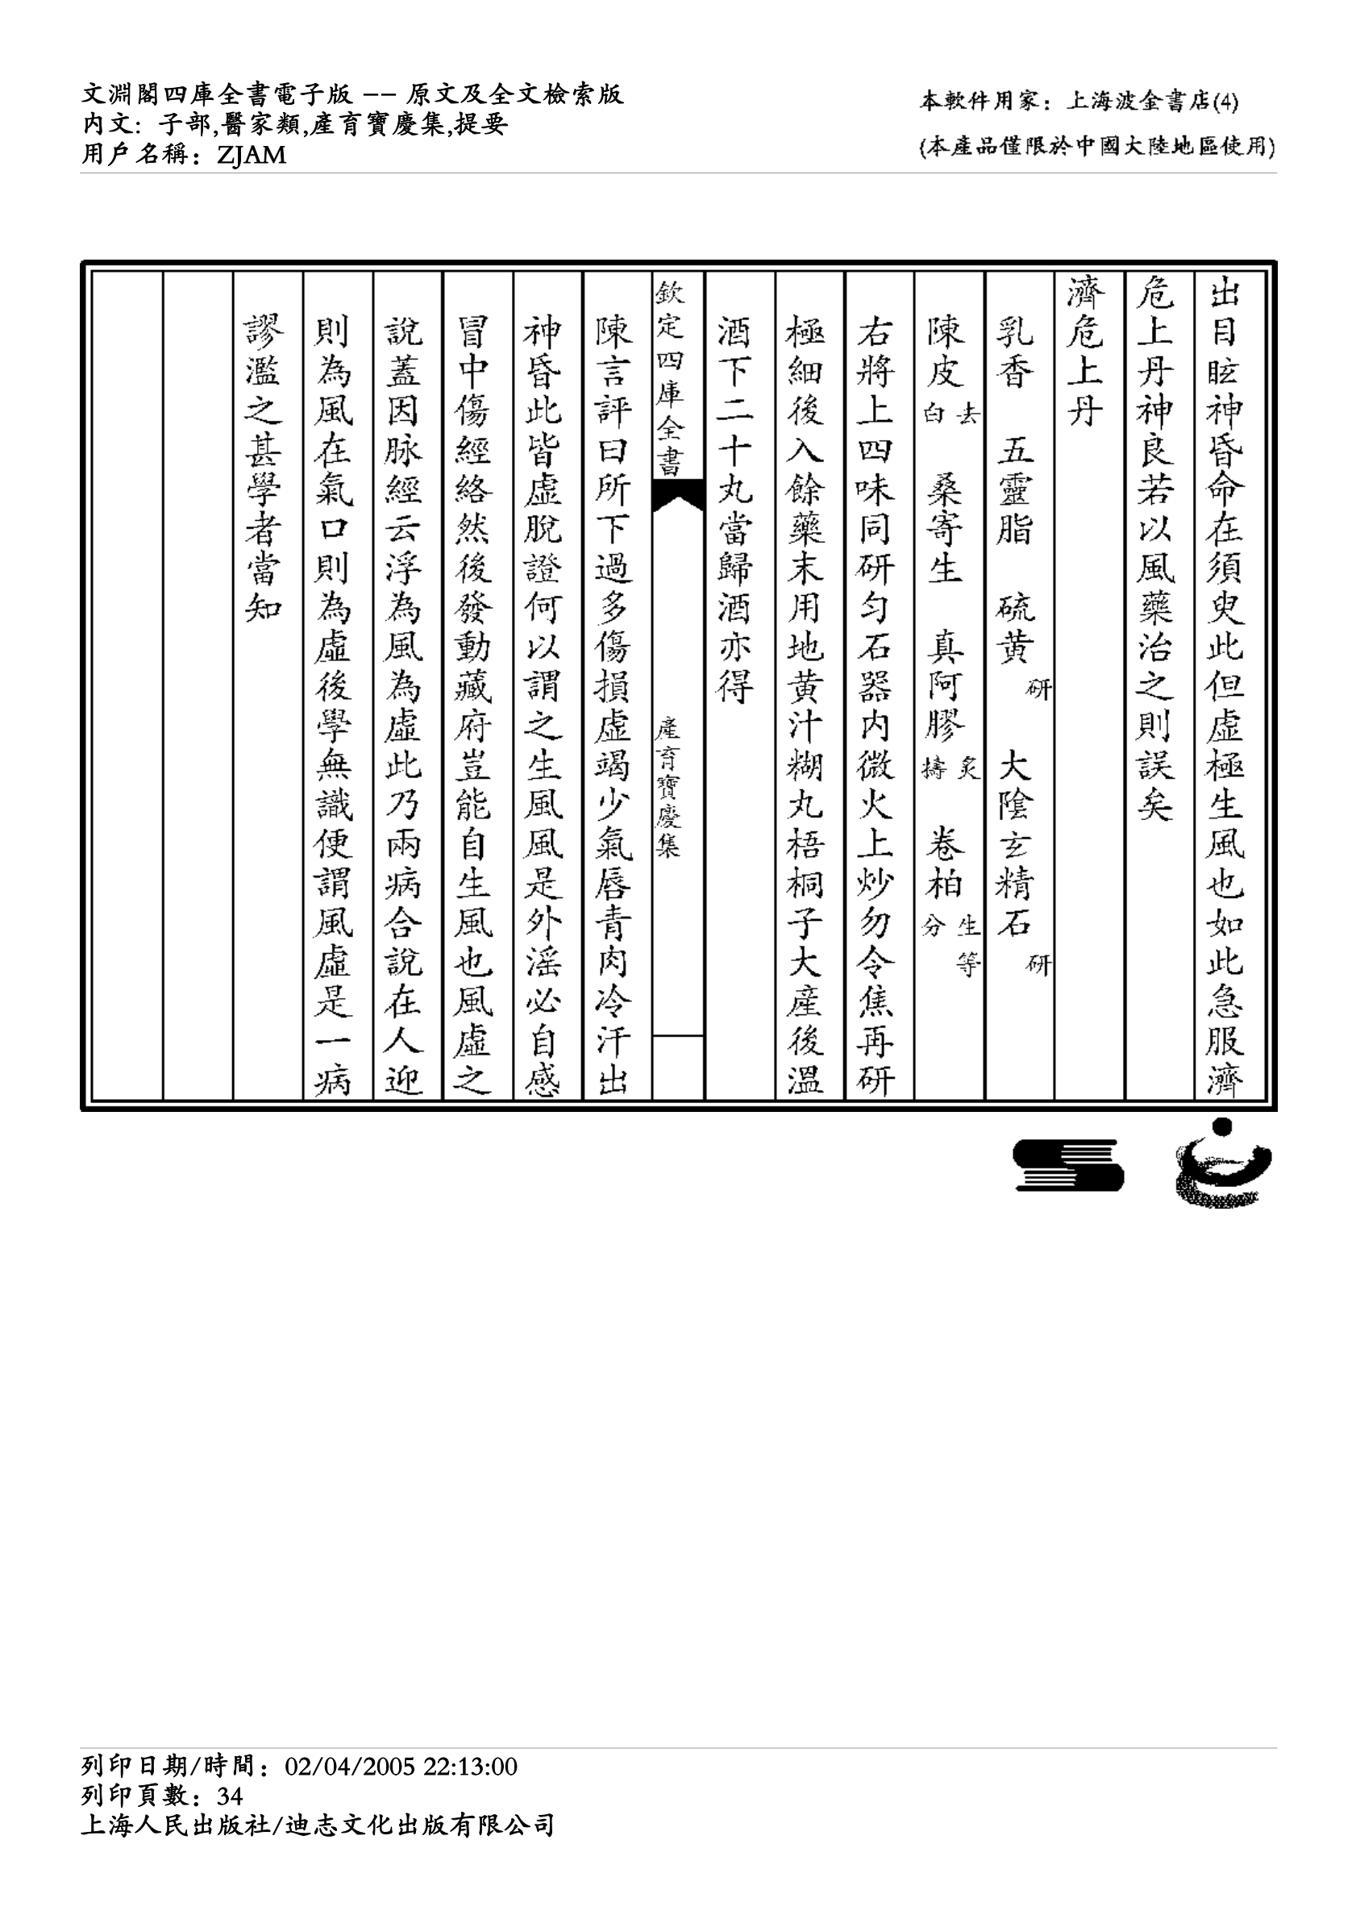 文淵閣四庫全書電子版 -- 原文及全文檢索版
内文: 子部,醫家類,產育寶慶集,提要
用戶名稱: ZJAM
本軟件用家: 上海波金書店(4)
(本產品僅限於中國大陸地區使用)
出目眩神昏命在須臾此但虛極生風也如此急服濟
危上丹神良若以風藥治之則誤矣
濟危上丹
乳香 五靈脂 硫黄研 大陰玄精石研
陳皮去白 桑寄生 真阿膠炙擣 卷柏生等分
右將上四味同研勻石器内微火上炒勿令焦再研
極細後入餘藥末用地黄汁糊丸梧桐子大產後温
酒下二十丸當歸酒亦得
欽定四庫全書
產育寶慶集
陳言評曰所下過多傷損虛竭少氣唇青肉冷汗出
神昏此皆虛脫證何以謂之生風風是外淫必自感
冒中傷經絡然後發動藏府豈能自生風也風虛之
說蓋因脉經云浮為風為虛此乃兩病合說在人迎
則為風在氣口則為虛後學無識便謂風虛是一病
謬濫之甚學者當知
列印日期/時間: 02/04/2005 22:13:00
列印頁數: 34
上海人民出版社/迪志文化出版有限公司